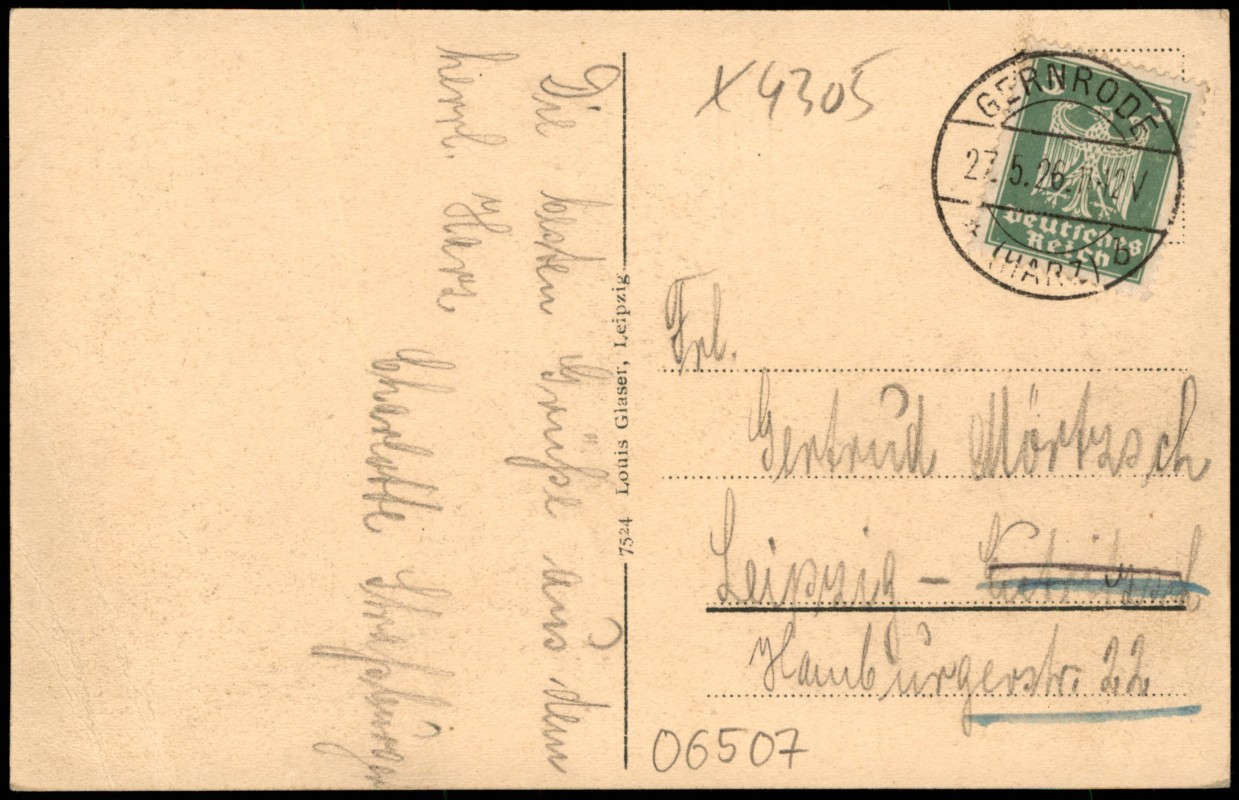 Die besten Grüße aus dem
herrl. Harz
Charlotte
7524 Louis Glaser, Leipzig
X 4305
GERNRODE
27.5.26. 11-12 V
* (HARZ) b
5 5
Deutsches
Reich
Frl.
Gertrud Mörtzsch
Leipzig –
Hamburgerstr. 22
06507